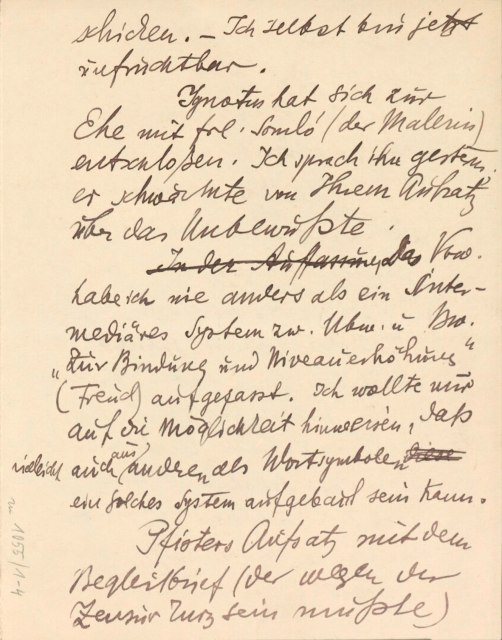 schicken. – Ich selbst bin jetzt
unfruchtbar.
Ignotus hat sich zur
Ehe mit frl. Somló (der Malerin)
entschloßen. Ich sprach ihn gestern.
er schwärmte von Ihrem Aufsatz
über das Unbewußte.
In der Auffassung Das Vbw.
habe ich nie anders als ein Inter-
mediäres System zw. Ubw. u Bw.
„Zur Bindung und Niveauerhöhung"
(Freud) aufgefasst. Ich wollte nur
auf die Möglichkeit hinweisen, daß
vielleicht auch aus anderen als Wortsymbolen diese
ein solches System aufgebaut sein kann.
Pfisters Aufsatz mit dem
Begleitbrief (der wegen der
Zensur kurz sein mußte)
nu 1055/1-4